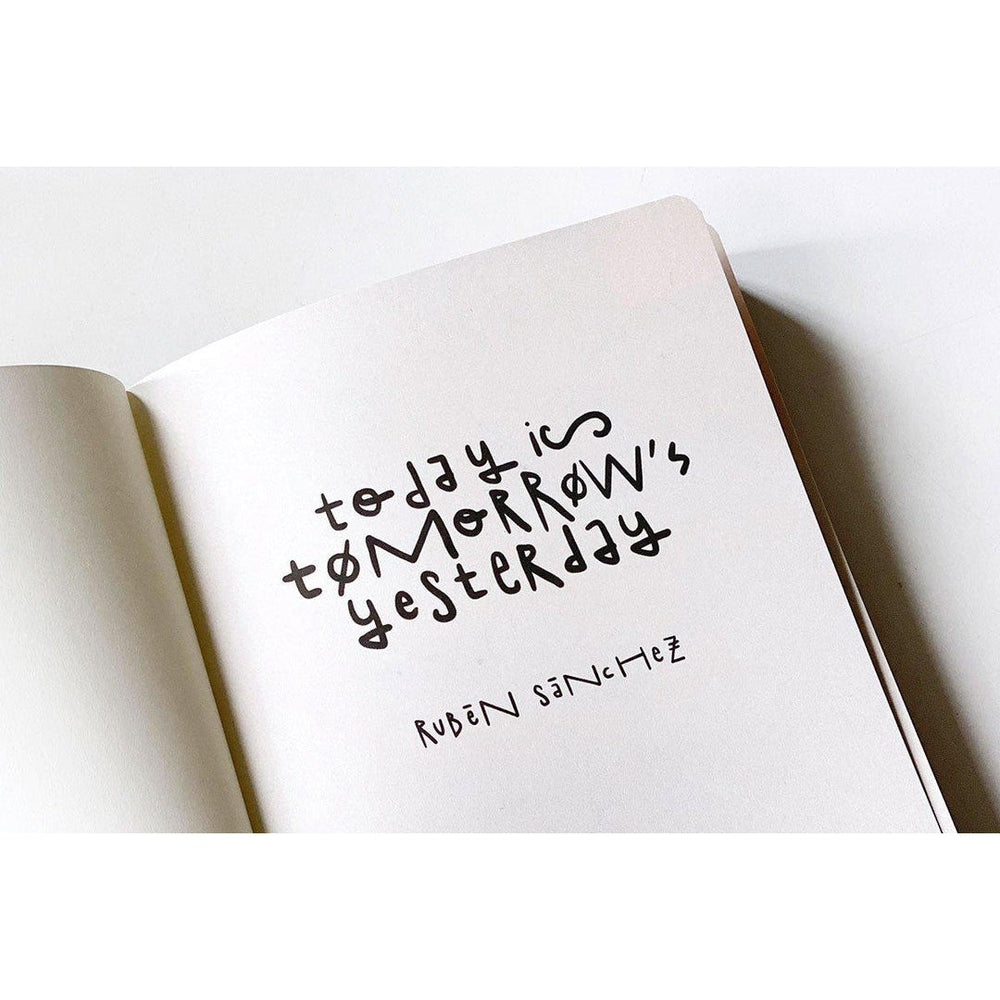 today is
tøMoRRØW's
yesteRday
RUBēN SāNcHeZ